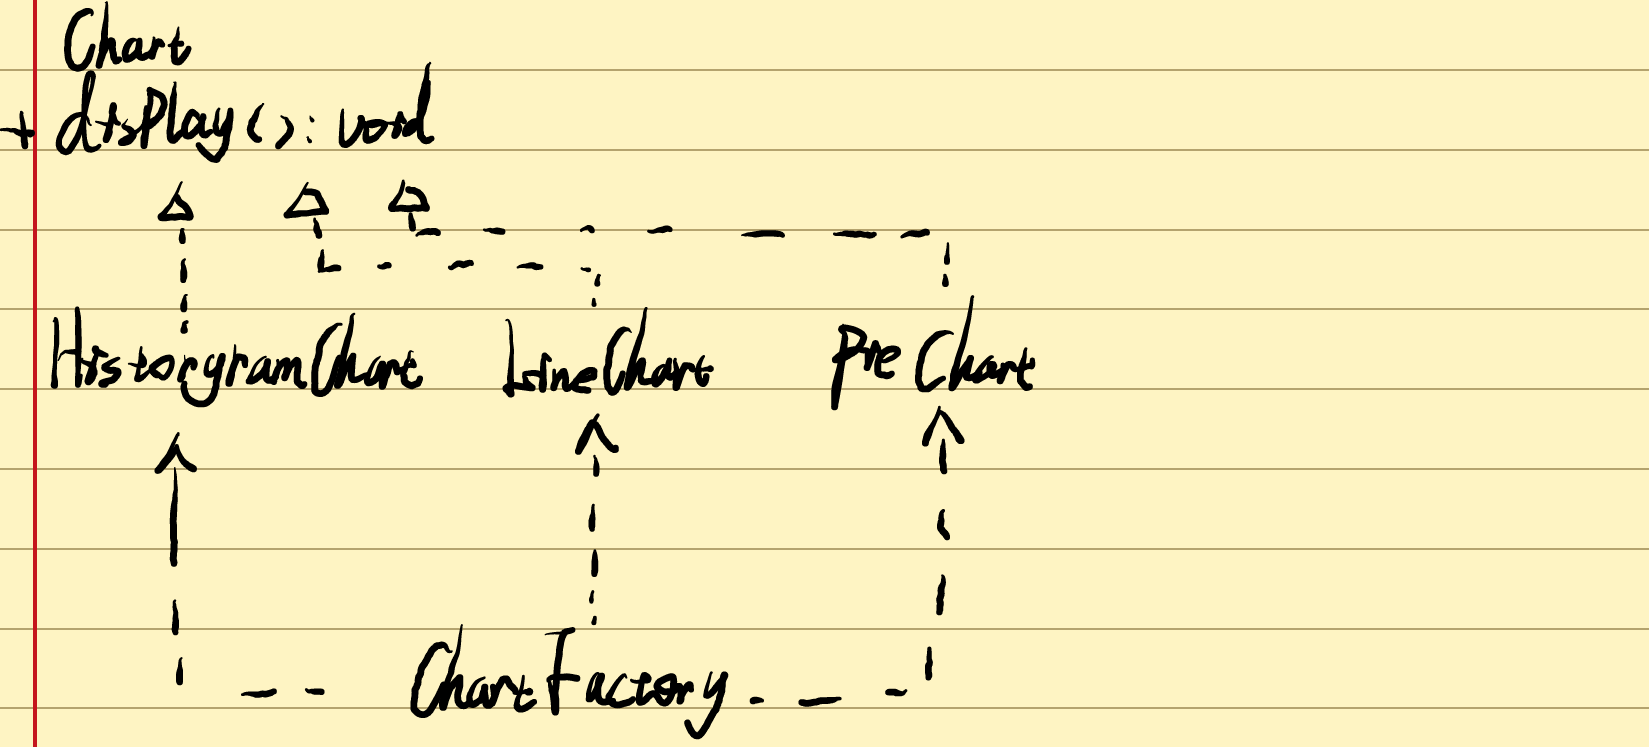 Chart
+ display(): void
HistorgramChart LineChart PieChart
ChartFactory